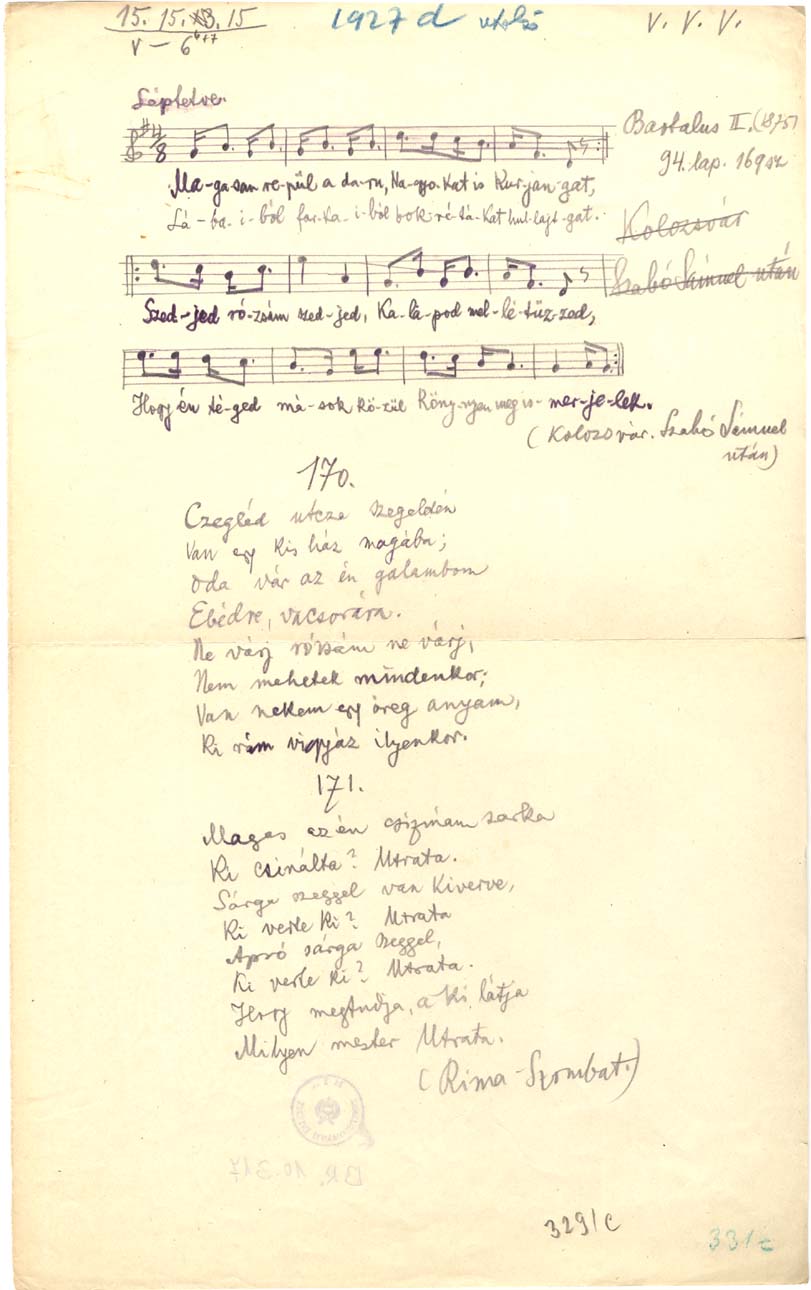 15. 15. 13. 15
V – 6
6+7
1927 d utolsó
V. V. V.
Lépletve.
4/8
Bartalus II. (1875)
94. lap. 169 sz
Ma-ga-san re-pül a da-ru, Na-gyo-kat is kur-jan-gat,
Lá-ba-i-ból far-ka-i-ból bok-ré-tá-kat hul-lajt-gat.
Kolozsvár
Szabó Sámuel után
Szed-jed ró-zsám szed-jed, Ka-lá-pod mel-lé tűz-zed,
Hogy én té-ged má-sok kö-zül Köny-nyen meg is-mer-je-lek.
(Kolozsvár. Szabó Sámuel
után)
170.
Czegléd utcza szegeldén
Van egy kis ház magába;
Oda vár az én galambom
Ebédre, vacsorára.
Ne várj rózsám ne várj,
Nem mehetek mindenkor;
Van nekem egy öreg anyám,
Ki rám vigyáz ilyenkor.
171.
Magas az én csizmám sarka
Ki csinálta? Utrata.
Sárga szeggel van kiverve,
Ki verte ki? Utrata
Apró sárga szeggel,
Ki verte ki? Utrata.
Hogy megtudja, a ki látja
Milyen mester Utrata.
(Rima-Szombat.)
BR. 10.317
329/c
331c